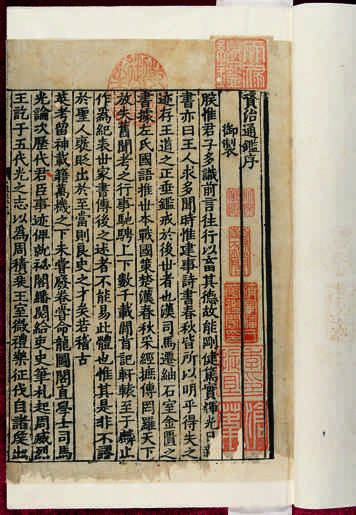 資治通鑑序
御製
朕惟君子多識前言往行以畜其德故能剛健篤實輝光日新
書亦曰王人求多聞時惟建事詩書春秋皆所以明乎得失之
迹存王道之正垂鑑戒於後世者也漢司馬遷紬石室金匱之
書據左氏國語推世本戰國策楚漢春秋采經摭傳罔羅天下
放失舊聞考之行事馳騁上下數千載間首記軒轅至于麟止
作爲紀表世家書傳後之述者不能易此體也惟其是非不謬
於聖人襃貶出於至當則良史之才矣若稽古
英考留神載籍萬機之下未嘗廢卷嘗命龍圖閣直學士司馬
光論次歷代君臣事迹俾就祕閣繙閱給吏史筆札起周威烈
王訖于五代光之志以爲周積衰王室微禮樂征伐自諸侯出